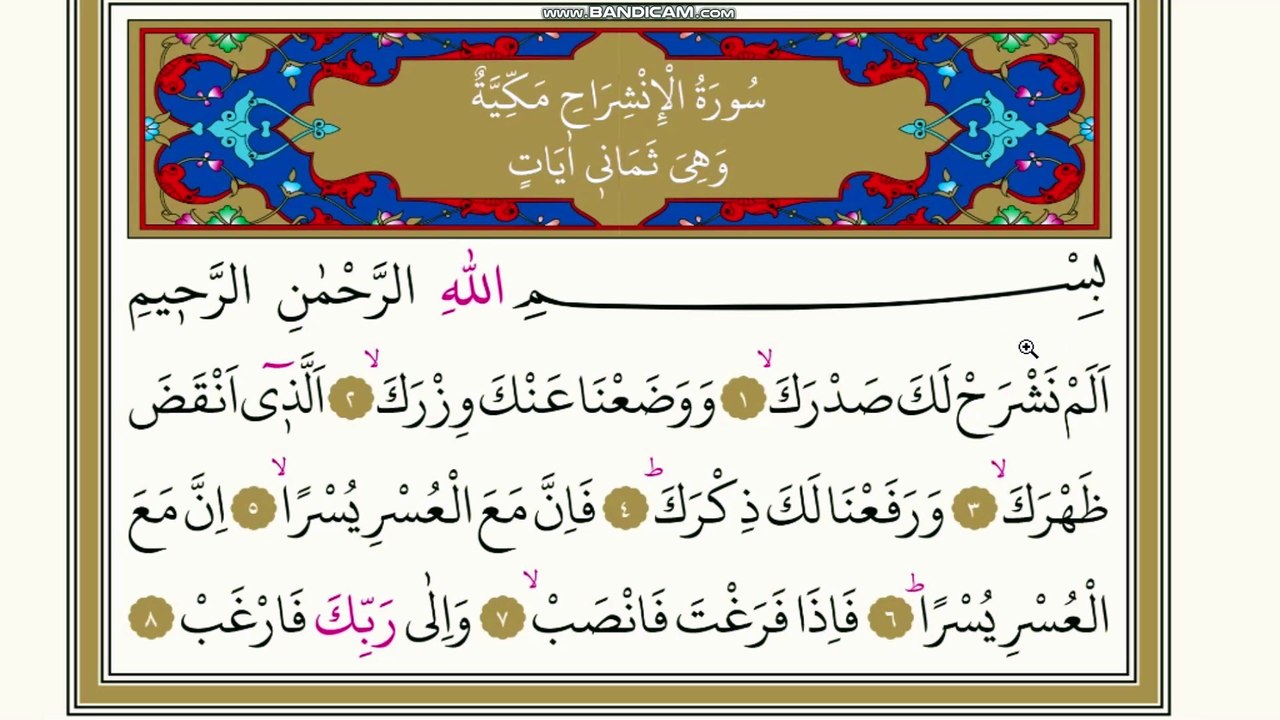 www.BANDICAM.com
سُورَةُ الْاِنْشِرَاحِ مَكِّيَّةٌ
وَهِىَ ثَمَانٖى اٰيَاتٍ
بِسْمِ اللّٰهِ الرَّحْمٰنِ الرَّحٖيمِ
اَلَمْ نَشْرَحْ لَكَ صَدْرَكَۙ ﴿١﴾ وَوَضَعْنَا عَنْكَ وِزْرَكَۙ ﴿٢﴾ اَلَّذٖٓى اَنْقَضَ
ظَهْرَكَۙ ﴿٣﴾ وَرَفَعْنَا لَكَ ذِكْرَكَؕ ﴿٤﴾ فَاِنَّ مَعَ الْعُسْرِ يُسْرًاۙ ﴿٥﴾ اِنَّ مَعَ
الْعُسْرِ يُسْرًاؕ ﴿٦﴾ فَاِذَا فَرَغْتَ فَانْصَبْۙ ﴿٧﴾ وَاِلٰى رَبِّكَ فَارْغَبْ ﴿٨﴾